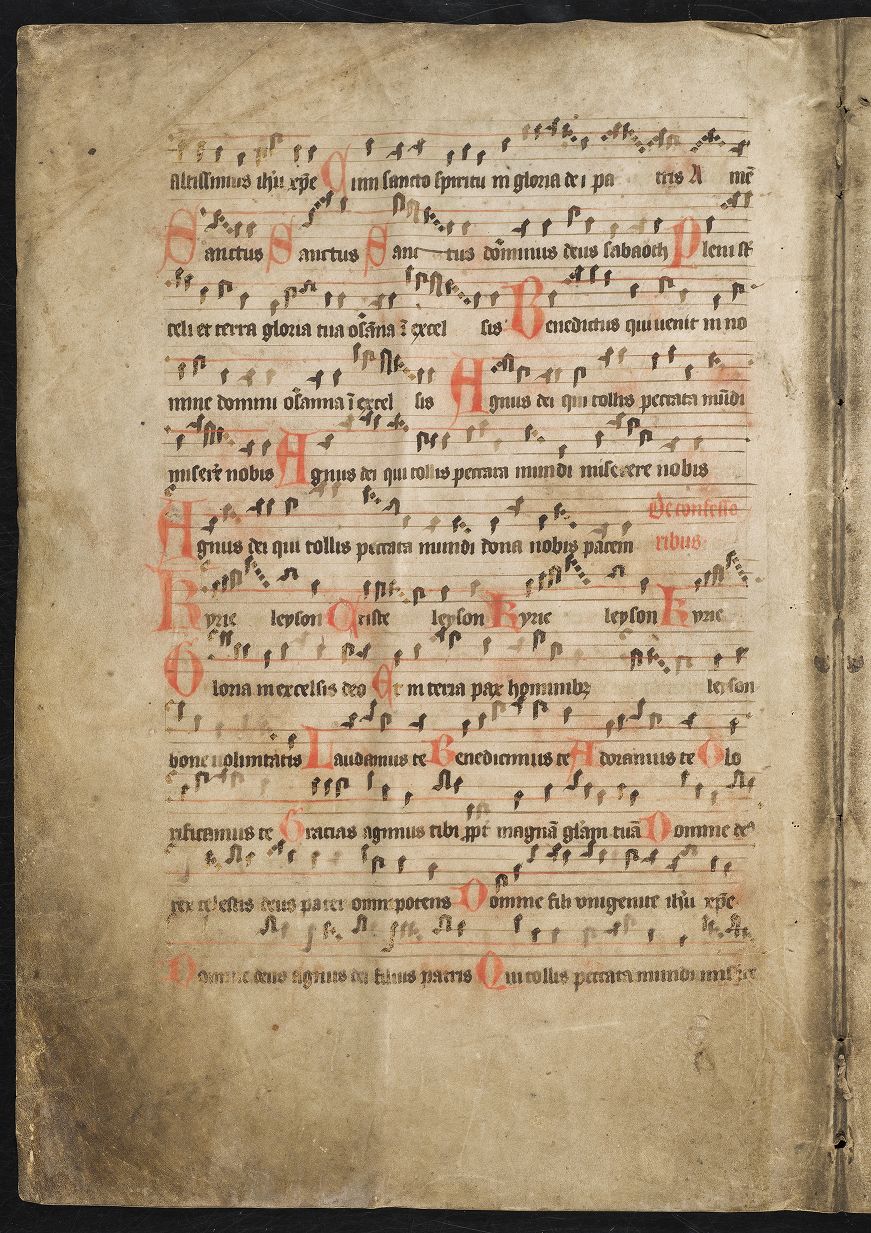 altissimus ih̄u xp̄e Cum sancto spiritu in gloria dei pa tris A mē
Sanctus Sanctus Sanc tus dominus deus sabaoth Pleni st̄
celi et terra gloria tua osāna ī excel sis Benedictus qui uenit in no
mine domini osanna ī excel sis Agnus dei qui tollis peccata mūdi
miserēre nobis Agnus dei qui tollis peccata mundi miserere nobis
Agnus dei qui tollis peccata mundi dona nobis pacem De confesso
ribus
Kyrie leyson Criste leyson Kyrie leyson Kyrie
Gloria in excelsis deo Et in terra pax hominibꝫ leyson
bone uoluntatis Laudamus te Benedicimus te Adoramus te Glo
rificamus te Gratias agimus tibi ꝓpt̄ magnā glāʒ tuā Domine de9
rex celestis deus pater omnipotens Domine fili vnigenite ih̄u xp̄e
Domine deus agnus dei filius patris Qui tollis peccata mundi